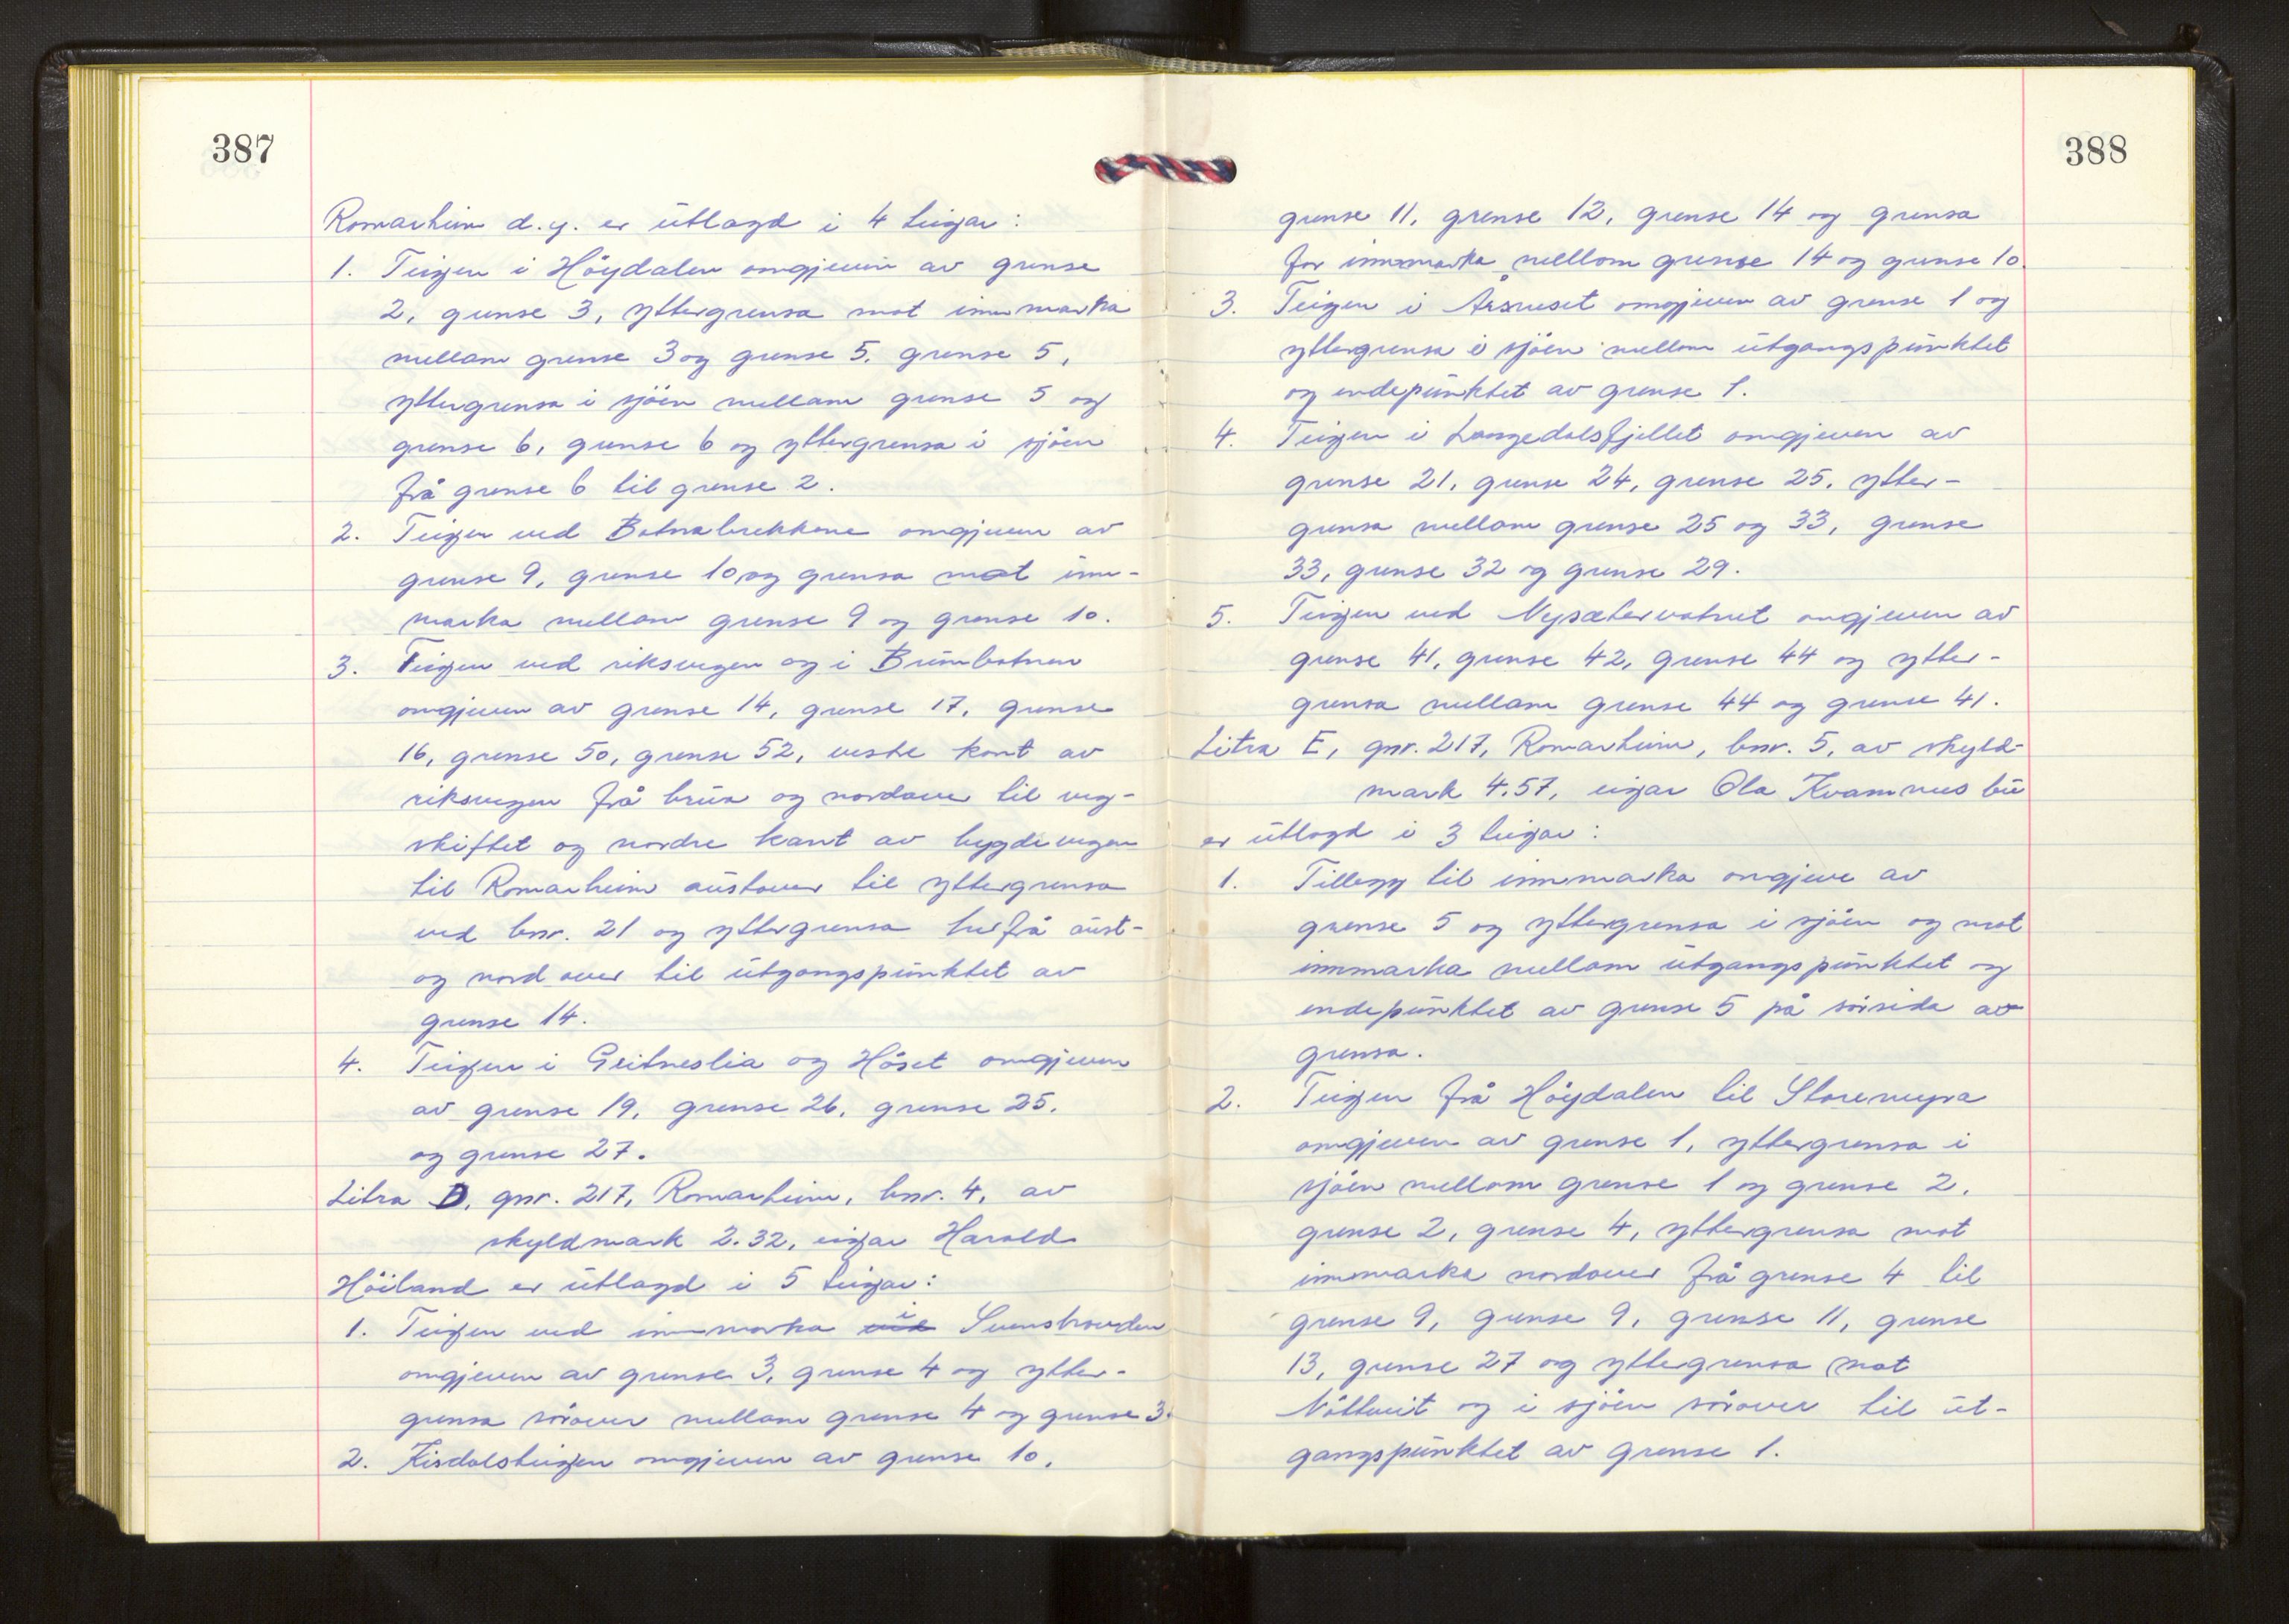 387
Romarheim d.y. er utlagd i 4 teigar:
1. Teigen i Höydalen omgjeven av grense
2, grense 3, yttergrensa mot innmarka
mellom grense 3 og grense 5, grense 5,
yttergrensa i sjöen mellom grense 5 og
grense 6, grense 6 og yttergrensa i sjöen
frå grense 6 til grense 2.
2. Teigen ved Botnabrekkene omgjeven av
grense 9, grense 10 og grensa mot inn-
marka mellom grense 9 og grense 10.
3. Teigen ved riksvegen og i Brumbotnen
omgjeven av grense 14, grense 17, grense
16, grense 50, grense 52, veste kant av
riksvegen frå brua og nordover til veg-
skiftet og nordre kant av bygdevegen
til Romarheim austover til yttergrensa
ved bnr. 21 og yttergrensa herfrå aust-
og nordover til utgangspunktet av
grense 14.
4. Teigen i Geitneslia og Höset omgjeven
av grense 19, grense 26, grense 25,
og grense 27.
Litra D, gnr. 217, Romarheim, bnr. 4, av
skyldmark 2.32, eigar Harald
Höiland er utlagd i 5 teigar:
1. Teigen ved innmarka ved i Svenskouden
omgjeven av grense 3, grense 4 og ytter-
grensa sörover mellom grense 4 og grense 3.
2. Kisdalsteigen omgjeven av grense 10,
388
grense 11, grense 12, grense 14 og grensa
for innmarka mellom grense 14 og grense 10.
3. Teigen i Årsneset omgjeven av grense 1 og
yttergrensa i sjöen mellom utgangspunktet
og endepunktet av grense 1.
4. Teigen i Langedalsfjellet omgjeven av
grense 21, grense 24, grense 25, ytter-
grensa mellom grense 25 og 33, grense
33, grense 32 og grense 29.
5. Teigen ved Nysætervatnet omgjeven av
grense 41, grense 42, grense 44 og ytter-
grensa mellom grense 44 og grense 41.
Litra E, gnr. 217, Romarheim, bnr. 5, av skyld-
mark 4.57, eigar Ola Kvamnes bu
er utlagd i 3 teigar:
1. Tillegg til innmarka omgjeve av
grense 5 og yttergrensa i sjöen og mot
innmarka mellom utgangspunktet og
endepunktet av grense 5 på sörsida av
grensa.
2. Teigen frå Höydalen til Storemyra
omgjeven av grense 1, yttergrensa i
sjöen mellom grense 1 og grense 2,
grense 2, grense 4, yttergrensa mot
innmarka nordover frå grense 4 til
grense 9, grense 9, grense 11, grense
13, grense 27 og yttergrensa mot
Nöttveit og i sjöen sörover til ut-
gangspunktet av grense 1.